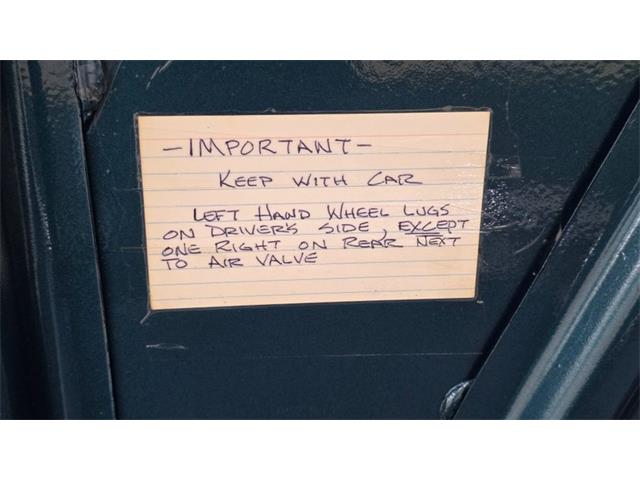 -IMPORTANT-
KEEP WITH CAR
LEFT HAND WHEEL LUGS
ON DRIVER'S SIDE, EXCEPT
ONE RIGHT ON REAR NEXT
TO AIR VALVE